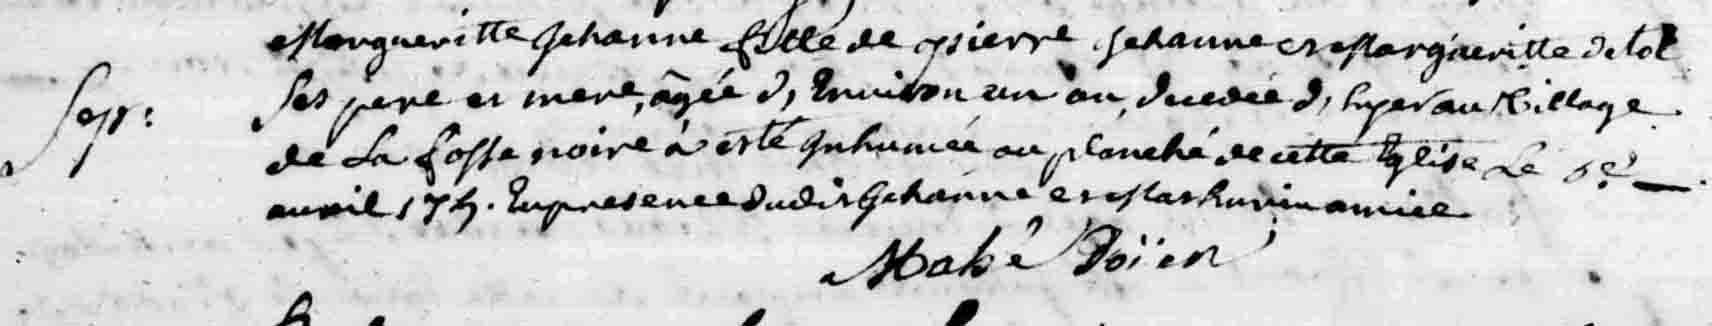 Margueritte Jehanne fille de pierre Jehanne et Margueritte
Sep: Ses pere et mere, âgée d'Environ un an, decedée d'hyer au Village
de La fosse noire à esté Inhumée au planché de cette Eglise Le 6e
avril En presence dudit Jehanne et Mathurin amice
Mahé Doïen